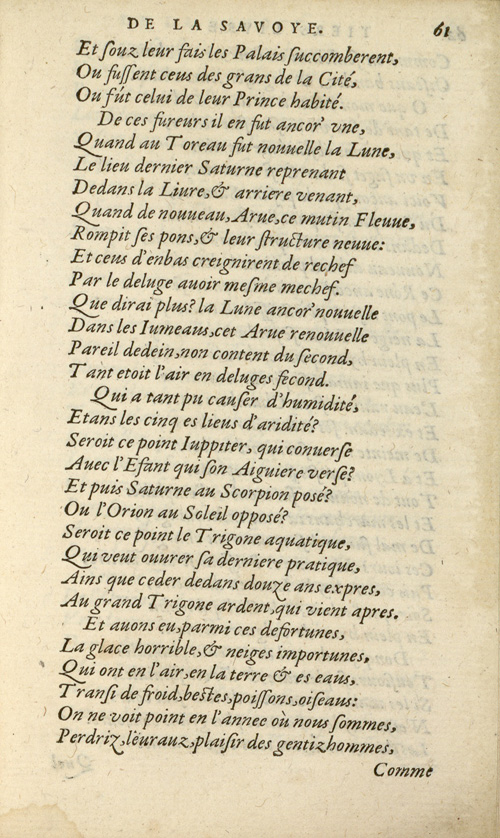 DE LA SAVOYE. 61
Et souz leur fais les Palais succomberent,
Ou fussent ceus des grans de la Cité,
Ou fút celui de leur Prince habité.
De ces fureurs il en fut ancor' vne,
Quand au Toreau fut nouuelle la Lune,
Le lieu dernier Saturne reprenant
Dedans la Liure, & arriere venant,
Quand de nouueau, Arue, ce mutin Fleuue,
Rompit ses pons, & leur structure neuue:
Et ceus d'enbas creignirent de rechef
Par le deluge auoir mesme mechef.
Que dirai plus? la Lune ancor' nouuelle
Dans les Iumeaus, cet Arue renouuelle
Pareil dedein, non content du second,
Tant etoit l'air en deluges fecond.
Qui a tant pu causer d'humidité,
Etans les cinq es lieus d'aridité?
Seroit ce point Iuppiter, qui conuerse
Auec l'Efant qui son Aiguiere verse?
Et puis Saturne au Scorpion posé?
Ou l'Orion au Soleil opposé?
Seroit ce point le Trigone aquatique,
Qui veut ouurer sa derniere pratique,
Ains que ceder dedans douze ans expres,
Au grand Trigone ardent, qui vient apres.
Et auons eu, parmi ces defortunes,
La glace horrible, & neiges importunes,
Qui ont en l'air, en la terre & es eaus,
Transi de froid, bestes, poissons, oiseaus:
On ne voit point en l'annee où nous sommes,
Perdriz, leurauz, plaisir des gentizhommes,
Comme